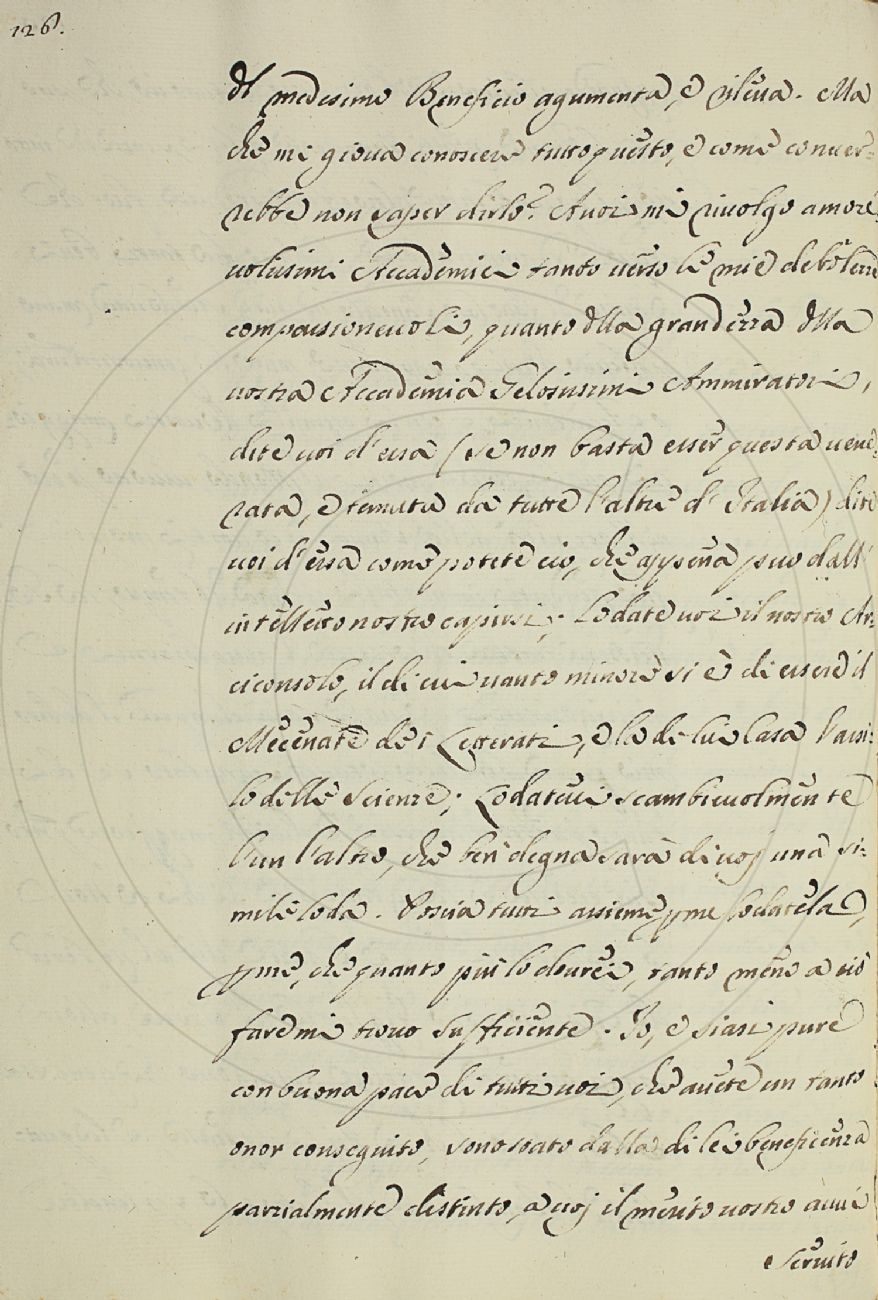 126.
del medesimo Beneficio agumenta, e rileva. Ma
che mi giova conoscere tutto questo, e come conver-
rebbe non saper dirlo? A voi mi rivolgo amore-
volissimi Accademici tanto verso le mie debolezze
compassionevoli, quanto dlla grandezza dlla
vostra Accademia Gelosissimi Ammiratori,
dite voi d'essa (se non basta esser questa vene-
rata, e temuta da tutte l'altre d'Italia) dite
voi d'essa come potete cio, che appena puo dall'
intelletto nostro capirsi; Lodate voi il nostro Ar-
ciconsolo, il di cui vanto minore si è di essere il
Mecenate de i Letterati, e la di lui Casa l'assi-
lo delle scienze; Lodatevi scambievolmente
l'un l'altro, che ben degna sarà di voj una si-
mile loda. Poscia tutti assieme p me lodatela,
p me, che quanto più lo dovrei, tanto meno a ciò
fare mi trovo sufficiente. Io, e siasi pure
con buona pace di tutti voi, che avete un tanto
onor conseguito, sono stato dalla di lei beneficenza
parzialmente distinto, a voj il merito vostro avvi
servito